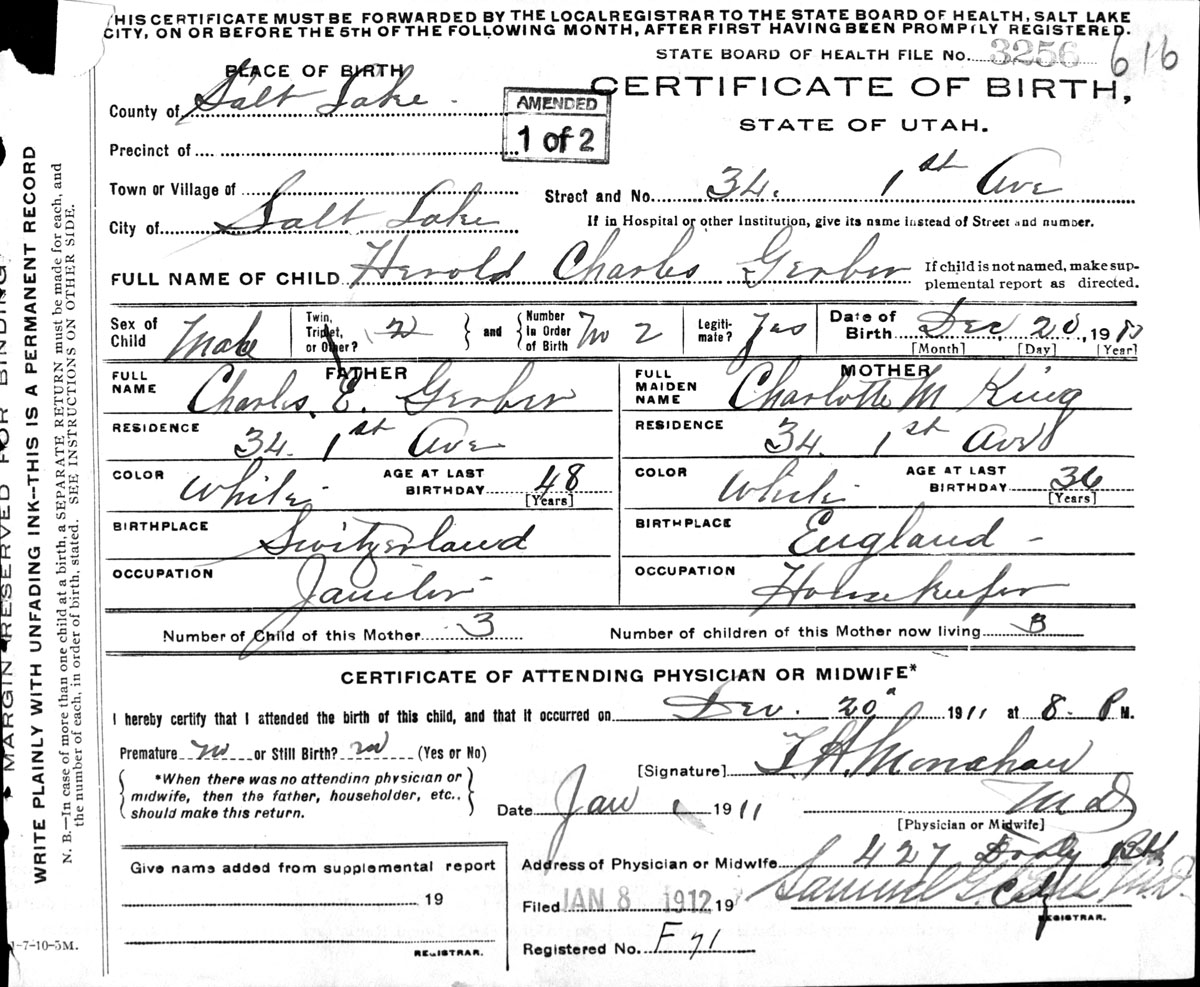 THIS CERTIFICATE MUST BE FORWARDED BY THE LOCAL REGISTRAR TO THE STATE BOARD OF HEALTH, SALT LAKE
CITY, ON OR BEFORE THE 5TH OF THE FOLLOWING MONTH, AFTER FIRST HAVING BEEN PROMPTLY REGISTERED.
STATE BOARD OF HEALTH FILE No. 3256 616
PLACE OF BIRTH
CERTIFICATE OF BIRTH,
STATE OF UTAH.
County of Salt Lake
AMENDED
1 of 2
Precinct of
Town or Village of
Street and No. 34. 1st Ave
City of Salt Lake
If in Hospital or other Institution, give its name instead of Street and number.
FULL NAME OF CHILD Herold Charles Gerber
If child is not named, make sup-
plemental report as directed.
Sex of Child Male
Twin, Triplet, or Other? 2 and Number in Order of Birth No 2
Legiti-mate? Yes
Date of Birth Dec, 20, 191
[Month] [Day] [Year]
FATHER
FULL NAME Charles E. Gerber
RESIDENCE 34. 1st Ave
COLOR White AGE AT LAST BIRTHDAY 48 [Years]
BIRTHPLACE Switzerland
OCCUPATION Janitor
MOTHER
FULL MAIDEN NAME Charlotte M King
RESIDENCE 34. 1st Ave
COLOR White AGE AT LAST BIRTHDAY 36 [Years]
BIRTHPLACE England -
OCCUPATION Housekeeper
Number of Child of this Mother 3 Number of children of this Mother now living 3
CERTIFICATE OF ATTENDING PHYSICIAN OR MIDWIFE*
I hereby certify that I attended the birth of this child, and that it occurred on Dec. 20 1911 at 8- P M.
Premature no or Still Birth? no (Yes or No)
*When there was no attending physician or
midwife, then the father, householder, etc.,
should make this return.
[Signature] T. H. Monahan
Date Jan 1 1911 M D
[Physician or Midwife]
Address of Physician or Midwife 427
Give name added from supplemental report
19
REGISTRAR.
Filed JAN 8 1912 19 Samuel G.
REGISTRAR.
Registered No. F 71
1-7-10-5M.
MARGIN RESERVED FOR BINDING
WRITE PLAINLY WITH UNFADING INK--THIS IS A PERMANENT RECORD
N. B.—In case of more than one child at a birth, a SEPARATE RETURN must be made for each, and
the number of each, in order of birth, stated. SEE INSTRUCTIONS ON OTHER SIDE.